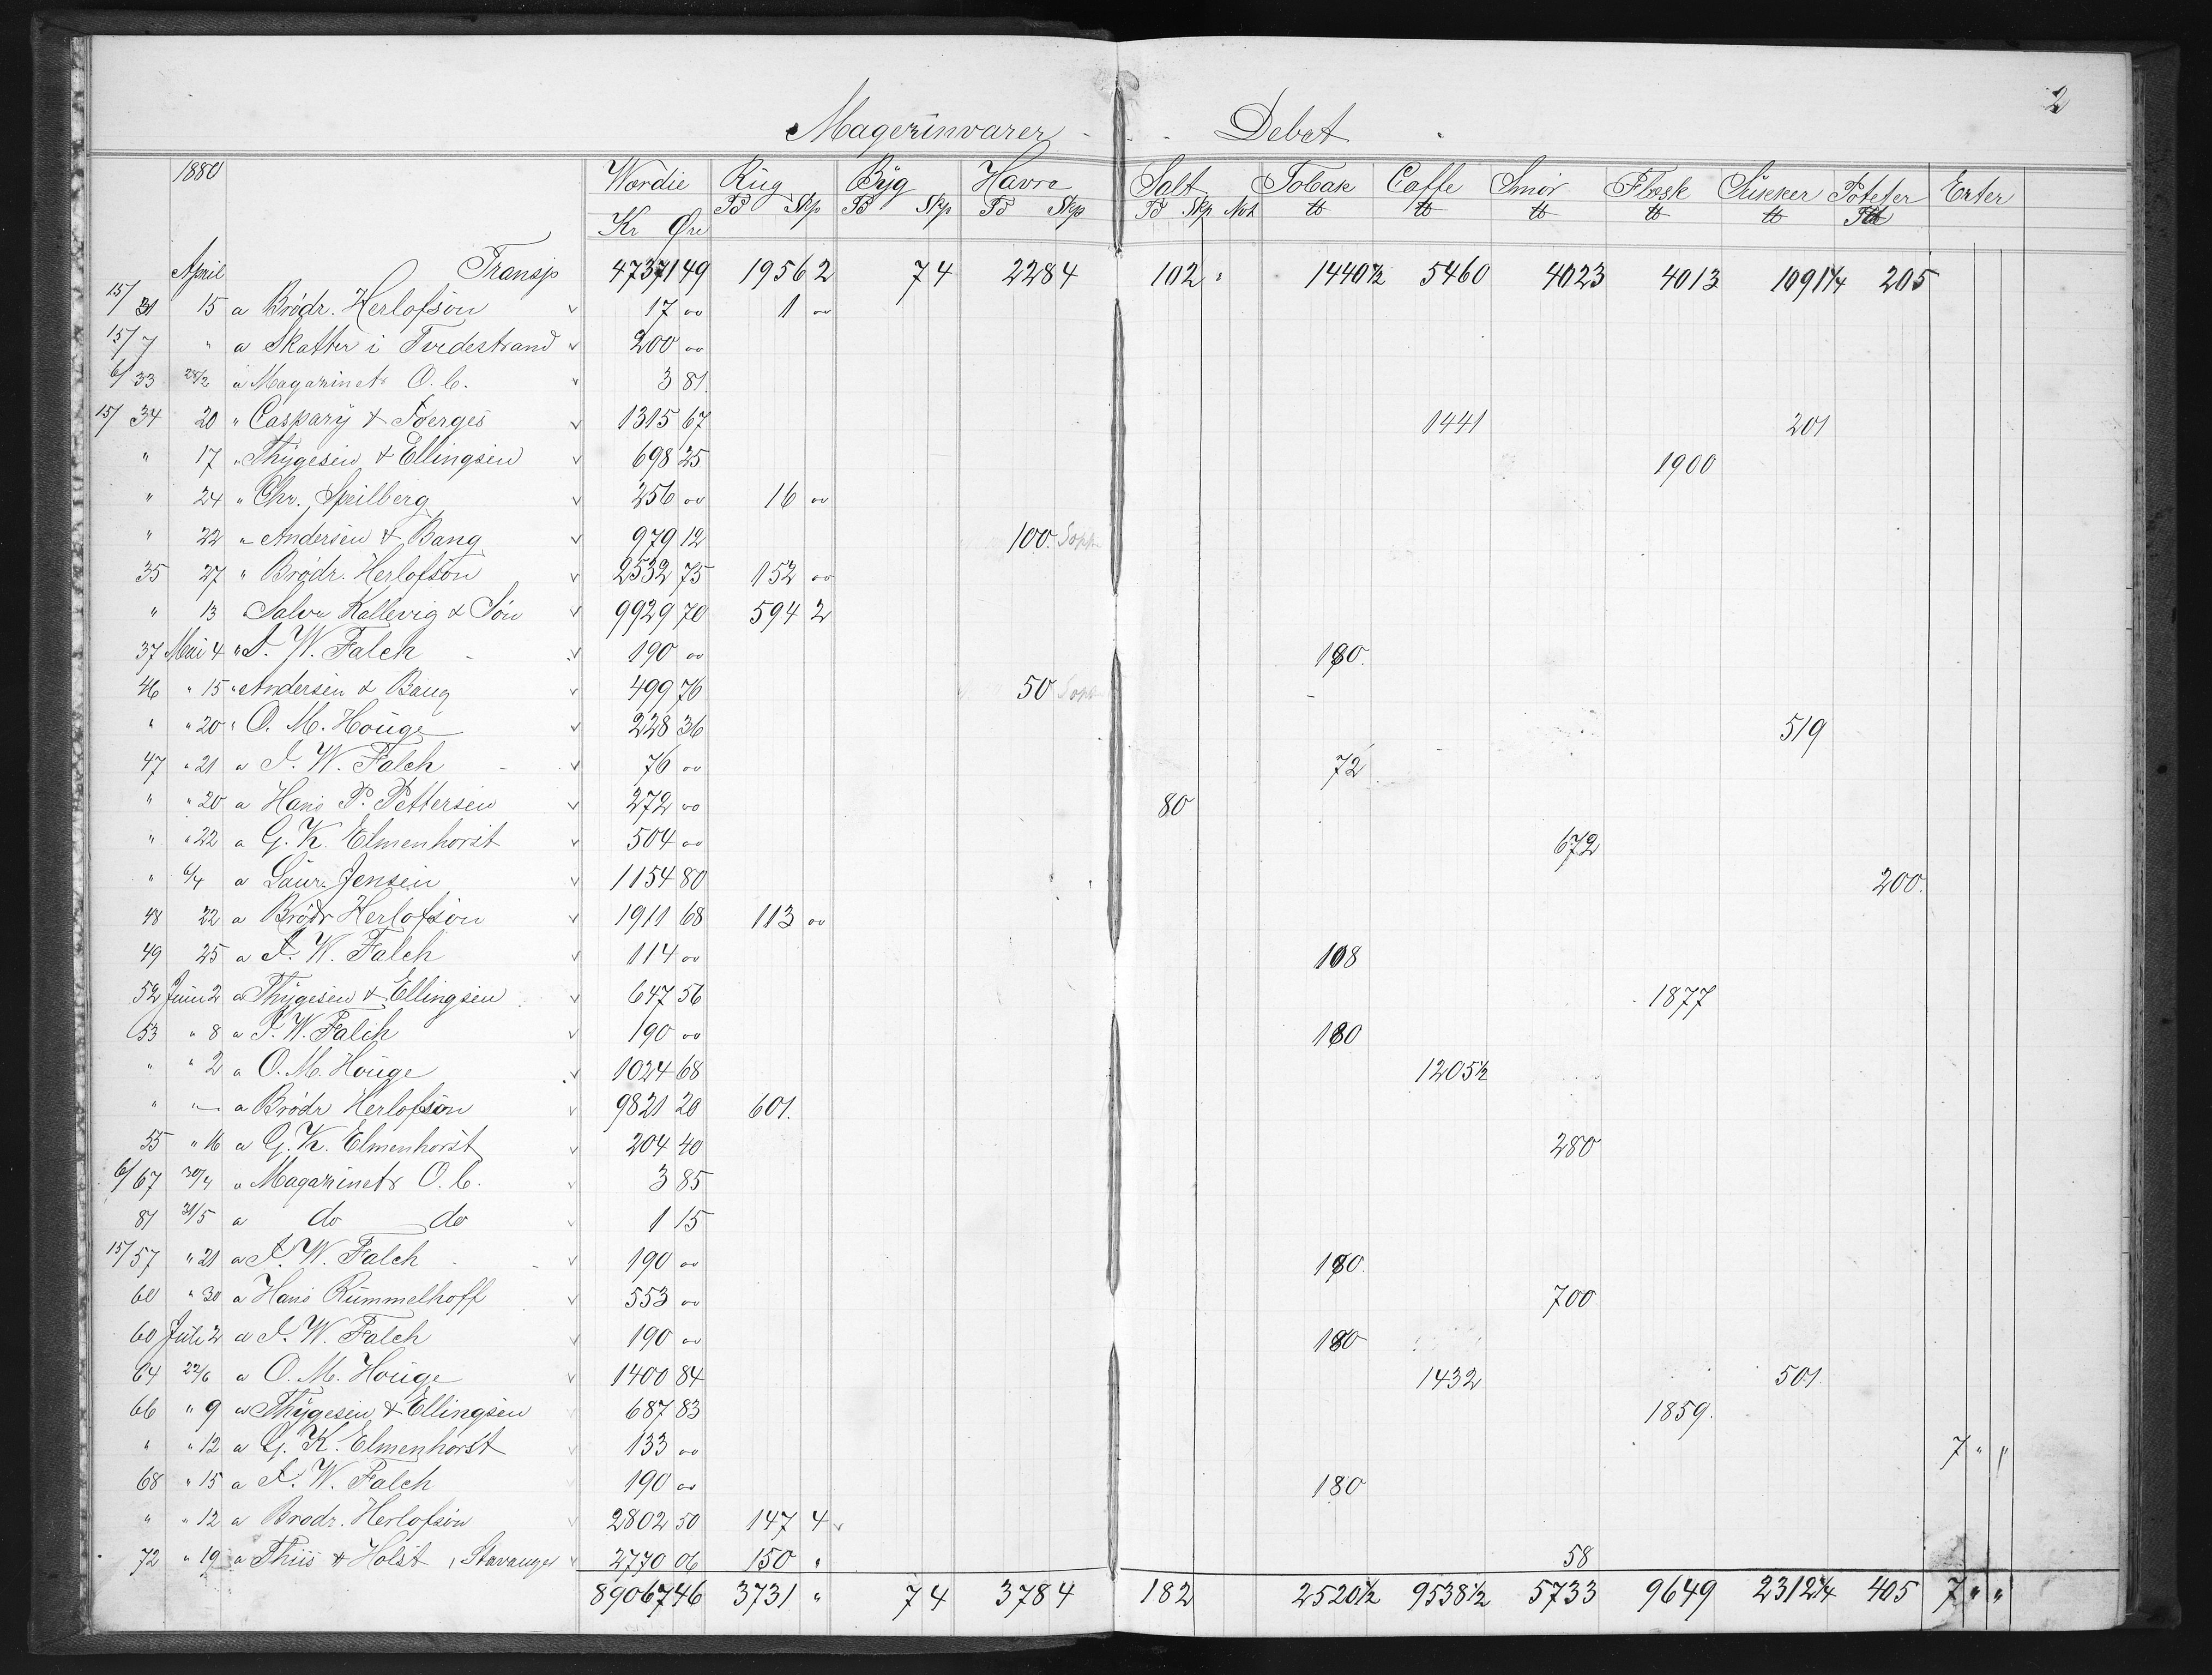 2
Magazinvarer Debet
1880 Værdie Rug Byg Havre Salt Tobak Caffe Smør Flesk Sukker Poteter Erter
Kr Øre Td Skp Td Skp Td Skp Td Skp Not ℔ ℔ ℔ ℔ ℔ Td
April Transp 47371 49 1956 2 7 4 228 4 102 " 1440½ 5460 4023 4013 1091¼ 205
15/31 15 a Brødr. Herlofson √ 17 00 1 00
15/7 " a Skatter i Tvedestrand √ 200 00
6/33 28/2 a Magazinets O.C. √ 3 81
15/34 20 " Caspary & Joerges √ 1315 67 1441 201
" 17 " Thygesen & Ellingsen √ 698 25 1900
" 24 " Chr. Speilberg √ 256 00 16 00
" 22 " Andersen & Bang √ 979 12 100.
35 27 " Brødr. Herlofson √ 2532 75 152 00
" 13 " Salve Kallevig & Søn √ 9929 70 594 2
37 Mai 4 " I. W. Falch √ 190 00 180.
46 " 15 " Andersen & Bang √ 499 76 50
" " 20 " O. M. Houge √ 228 36 519
47 " 21 a I. W. Falch √ 76 00 72
" " 20 a Hans P. Pettersen √ 272 00 80
" " 22 a G. K. Elmenhorst √ 504 00 672
" 6/4 a Laur. Jensen √ 1154 80 200.
48 22 a Brødr Herlofson √ 1911 68 113 00
49 25 a I. W. Falch √ 114 00 108
52 Juni 2 a Thygesen & Ellingsen √ 647 56 1877
53 " 8 a I. W. Falch √ 190 00 180
" " 2 a O. M. Houge √ 1024 68 1205½
" " — a Brødr Herlofson √ 9821 20 601.
55 " 16 a G. K. Elmenhorst √ 204 40 280
6/67 30/4 a Magazinets O.C. √ 3 85
81 31/5 a do do √ 1 15
15/57 " 21 a I. W. Falch √ 190 00 180.
60 " 30 a Hans Rummelhoff √ 553 00 700
60 Juli 2 a I. W. Falch √ 190 00 180
64 22/6 a O. M. Houge √ 1400 84 1432 501.
66 " 9 a Thygesen & Ellingsen √ 687 83 1859.
" " 12 a G. K. Elmenhorst √ 133 00 7 " "
68 " 15 a I. W. Falch √ 190 00 180
" " 12 a Brødr. Herlofson √ 2802 50 147 4 √
72 " 19 a Thiis & Holst, Stavanger √ 2770 06 150 " 58
89067 46 3731 " 7 4 378 4 182 2520½ 9538½ 5733 9649 2312¼ 405 7 " "